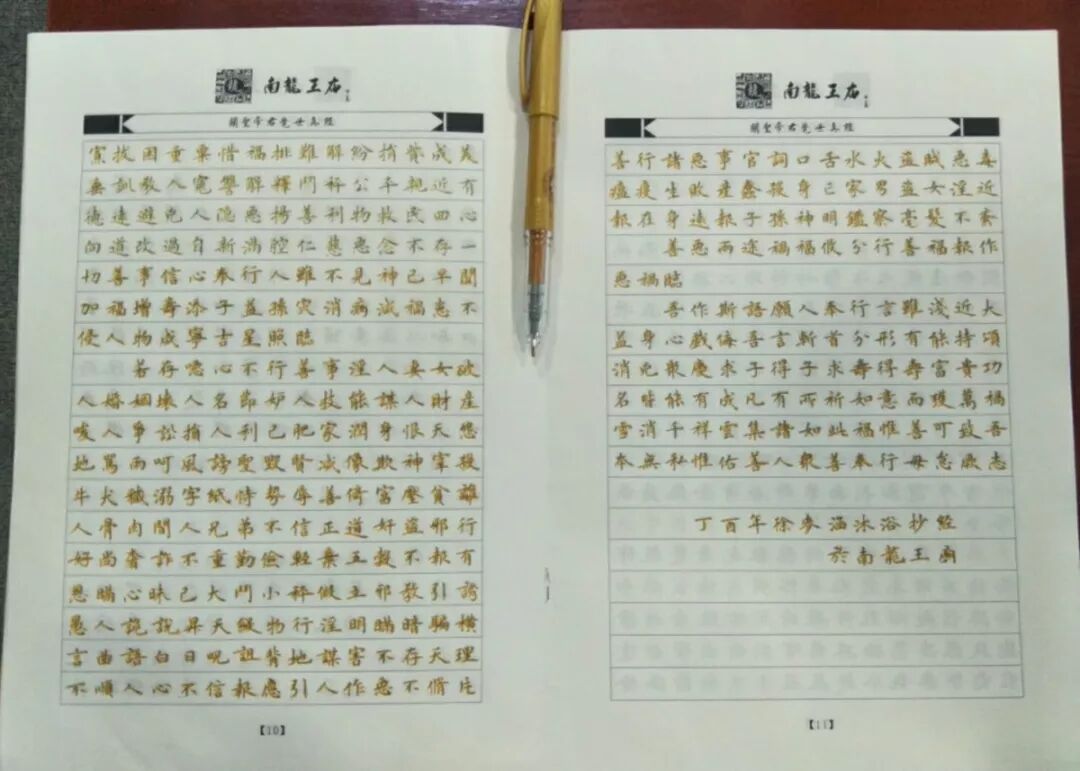 南龍王庙
關聖帝君覺世真經
寘拔困重粟惜福排難解紛捐貲成美
垂訓教人冤讐解釋鬥秤公平親近有
德遠避兇人隐惡揚善利物救民回心
向道改過自新滿腔仁慈惡念不存一
切善事信心奉行人雖不見神已早聞
加福增壽添子益孫灾消病減禍患不
侵人物咸寧吉星照臨
若存噁心不行善事淫人妻女破
人婚姻壞人名節妒人技能謀人財產
唆人爭訟損人利己肥家潤身恨天怨
地罵雨呵風謗聖毀賢滅像欺神宰殺
牛犬穢溺字紙恃勢辱善倚富壓貧離
人骨肉間人兄弟不信正道奸盜邪行
好尚奢詐不重勤儉輕棄五穀不報有
恩瞞心昧己大鬥小秤假立邪教引誘
愚人詭說昇天斂物行淫明瞞暗騙橫
言曲語白日呪詛背地謀害不存天理
不順人心不信報應引人作惡不脩片
【10】
南龍王庙
關聖帝君覺世真經
善行諸惡事官詞口舌水火盜賊惡毒
瘟疫生敗產蠢殺身亡家男盜女淫近
報在身遠報子孫神明鑑察毫髮不紊
善惡兩途禍福攸分行善福報作
惡禍臨
吾作斯語願人奉行言雖淺近大
益身心戲侮吾言斬首分形有能持頌
消兇聚慶求子得子求壽得壽富貴功
名皆能有成凡有所祈如意而獲萬禍
雪消千祥雲集諸如此福惟善可致吾
本無私惟佑善人衆善奉行毋怠厥志
丁酉年徐麥滿沐浴抄經
於南龍王庙
【11】